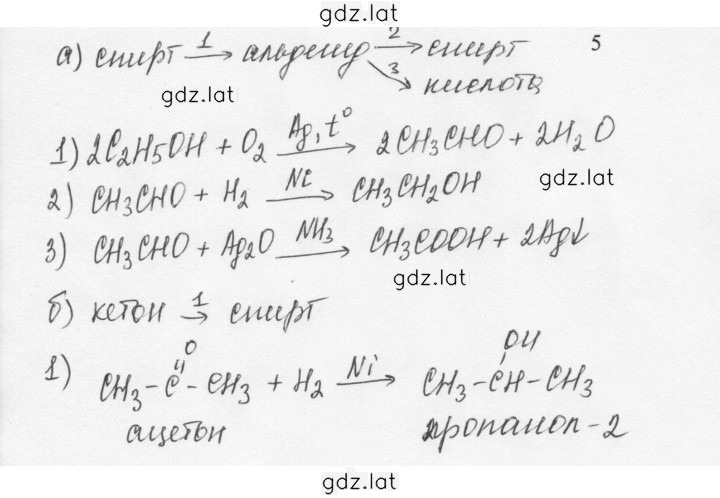 gdz.lat
а) спирт 1→ альдегид 2→ спирт 5
3→ кислота
gdz.lat
1) 2C₂H₅OH + O₂ Ag, t° → 2CH₃CHO + 2H₂O
gdz.lat
2) CH₃CHO + H₂ Ni → CH₃CH₂OH
3) CH₃CHO + Ag₂O NH₃ → CH₃COOH + 2Ag↓
gdz.lat
б) кетон 1→ спирт
O OH
1) CH₃-C-CH₃ + H₂ Ni → CH₃-CH-CH₃
ацетон пропанол-2
gdz.lat